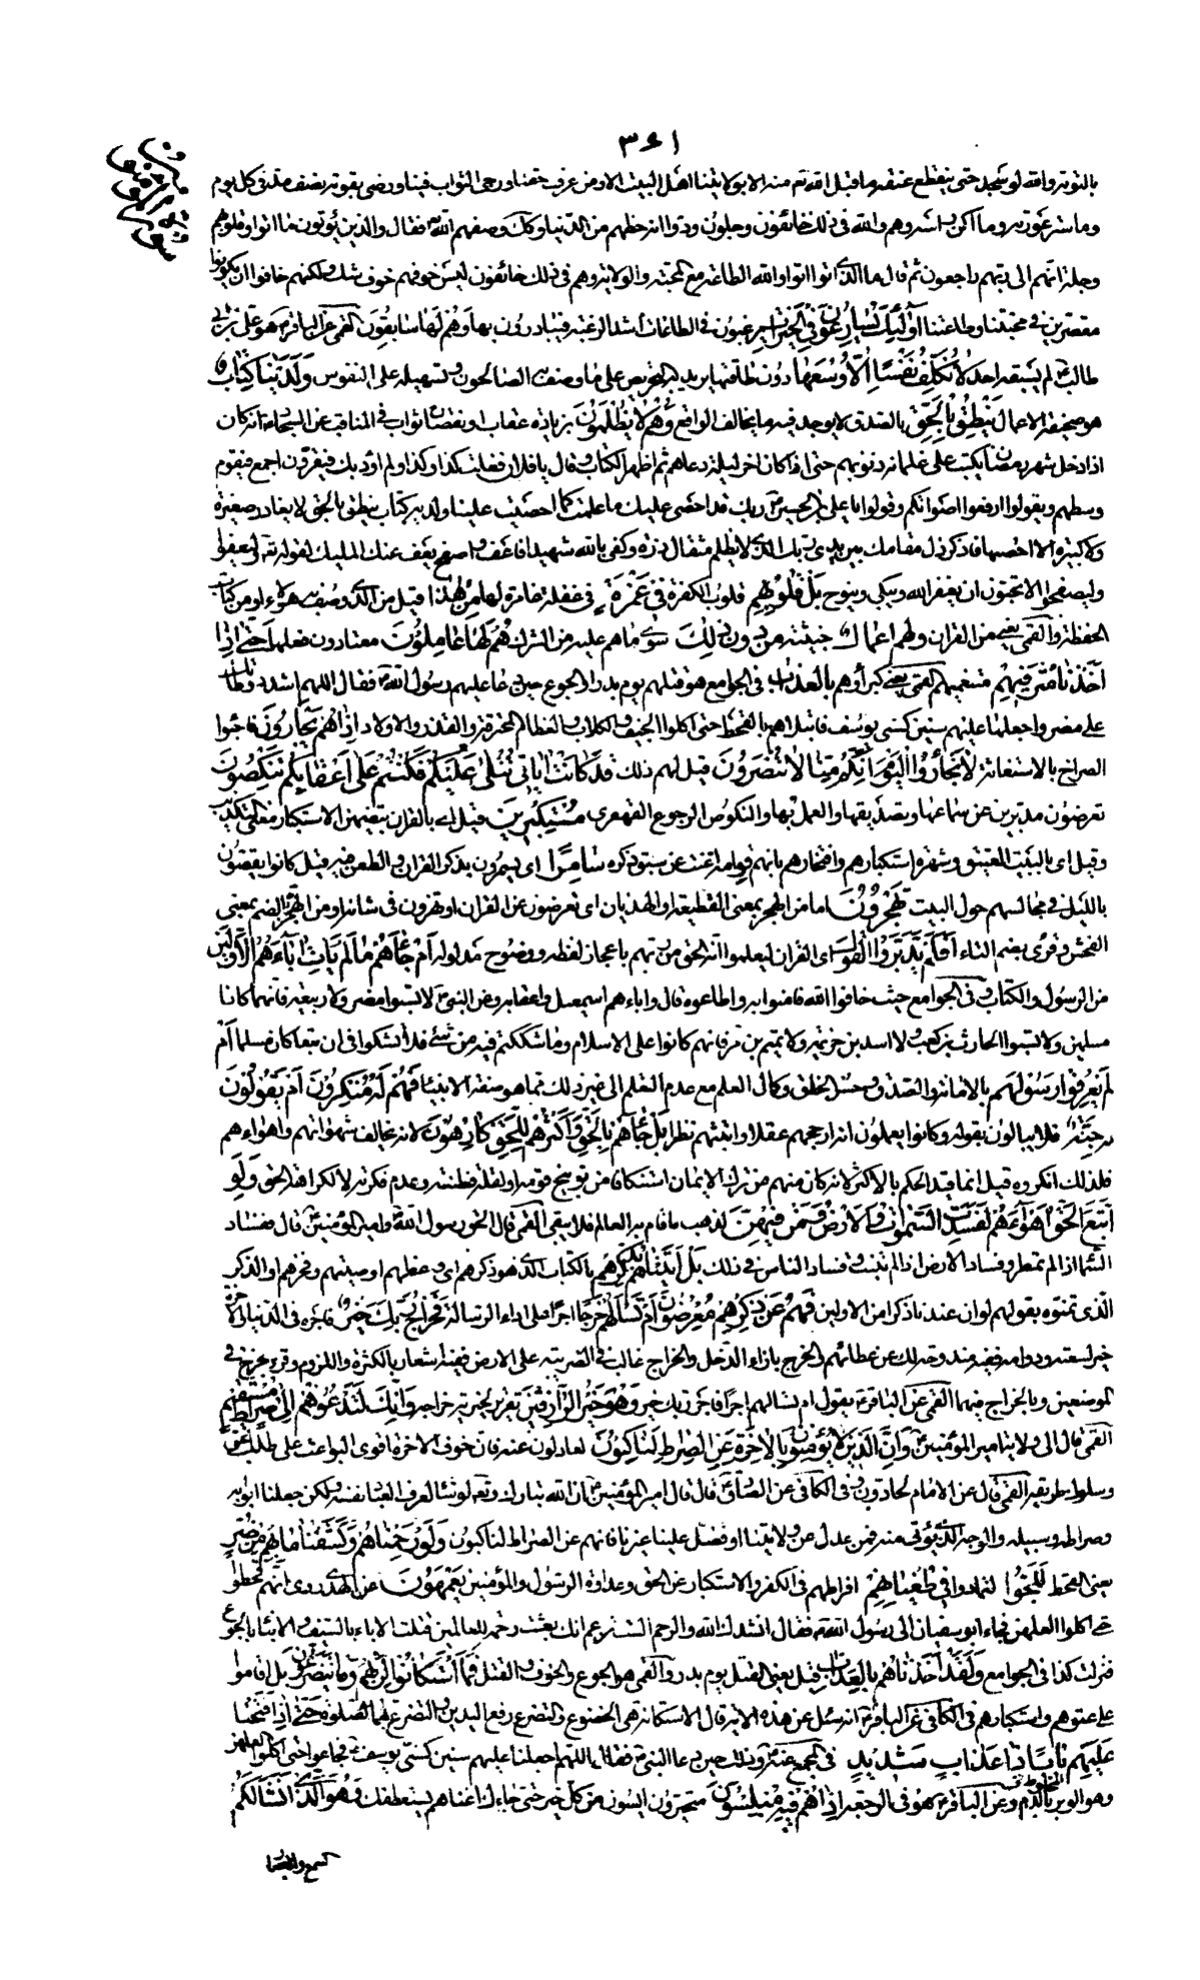 ٣٦١
بالتوبة والله لو سجد حتى ينقطع عنقه ما قبل الله تم منه الا بولايتنا اهل البيت الا ومن عرف حقنا ورجى الثواب فينا ورضى بقوته نصف مد فى كل يوم
وما ستر عورته وما اكن به راسه وهم والله فى ذلك خائفون وجلون ودوا انه حظهم من الدنيا وكك وصفهم الله فقال والذين يؤتون ما اتوا وقلوبهم
وجلة انهم الى ربهم راجعون ثم قال ما الذى اتوا اتوا والله الطاعة مع المحبة والولاية وهم فى ذلك خائفون ليس خوفهم خوف شك ولكنهم خافوا ان يكونوا
مقصرين فى محبتنا وطاعتنا اولئك يسارعون فى الخيرات يرغبون فى الطاعات اشد الرغبة فيبادرون بها وهم لها سابقون القمى عن الباقر هو على بن ابى
طالب لم يسبقه احد ولا نكلف نفسا الا وسعها دون طاقتها يريد به التحريص على ما وصف به الصالحون وتسهيله على النفوس ولدينا كتاب
هو صحيفة الاعمال ينطق بالحق بالصدق لا يوجد فيه ما يخالف الواقع وهم لا يظلمون بزيادة عقاب او نقصان ثواب فى المناقب عن السجاد انه كان
اذا دخل شهر رمضان يكتب على غلمانه ذنوبهم حتى اذا كان اخر ليلة دعاهم ثم اظهر الكتاب وقال يا فلان فعلت كذا وكذا ولم اؤدبك فيقرون اجمع فيقوم
وسطهم ويقول ارفعوا اصواتكم وقولوا يا على بن الحسين ربك قد احصى عليك ما عملت كما احصيت علينا ولديه كتاب ينطق بالحق لا يغادر صغيرة
ولا كبيرة الا احصيها فاذكر ذل مقامك بين يدى ربك الذى لا يظلم مثقال ذرة وكفى بالله شهيدا فاعف واصفح يعف عنك المليك لقوله تع وليعفوا
وليصفحوا الا تحبون ان يغفر الله ويبكى وينوح بل قلوبهم قلوب الكفرة فى غمرة فى غفلة غامرة لها من هذا قيل من الذى وصف به هؤلاء او من كتاب
الحفظة والقمى يعنى من القران ولهم اعمال خبيثة من دون ذلك سوى ما هم عليه من الشرك هم لها عاملون معتادون فعلها حتى اذا
اخذنا مترفيهم متنعميهم القمى يعنى كبراؤهم بالعذاب فى الجوامع هو قتلهم يوم بدر او الجوع حين دعا عليهم رسول الله فقال اللهم اشدد وطأتك
على مضر واجعلها عليهم سنين كسنى يوسف فابتلاهم بالقحط حتى اكلوا الجيف والكلاب والعظام المحترقة والقذر والاولاد اذا هم يجارون فاجئوا
الصراخ بالاستغاثة لا تجأروا اليوم انكم منا لا تنصرون قيل لهم ذلك قد كانت اياتى تتلى عليكم فكنتم على اعقابكم تنكصون
تعرضون مدبرين عن سماعها وتصديقها والعمل بها والنكوص الرجوع القهقرى مستكبرين به قيل اى بالقران بتضمن الاستكبار معنى التكذيب
وقيل اى بالبيت العتيق وشهرة استكبارهم وافتخارهم بانهم قوامه اغنت عن سبق ذكره سامرا اى يسمرون بذكر القران والطعن فيه وقيل كانوا يقصون
بالليل فى مجالسهم حول البيت تهجرون اما من الهجر بمعنى القطيعة او الهذيان اى تعرضون عن القران او تهذون فى شانه او من الهجر بالضم بمعنى
الفحش وقرئ بضم التاء افلم يدبروا القول اى القران ليعلموا انه الحق من ربهم باعجاز لفظه ووضوح مدلوله ام جاءهم ما لم يات اباءهم الاولين
من الرسول والكتاب وفى الجوامع حيث خافوا الله فامنوا به واطاعوه قال واباءهم اسمعيل واعقابه وعن النبى لا تسبوا مضر ولا ربيعة فانهما كانا
مسلمين ولا تسبوا الحارث بن كعب ولا اسد بن خزيمة ولا تميم بن مر فانهم كانوا على الاسلام وما شككتم فيه من شئ فلا تشكوا فى ان تبعا كان مسلما ام
لم يعرفوا رسولهم بالامانة والصدق وحسن الخلق وكمال العلم مع عدم التعلم الى غير ذلك مما هو صفة الانبياء فهم له منكرون ام يقولون
به جنة فلا يبالون بقوله وكانوا يعلمون انه ارجحهم عقلا واثبتهم نظرا بل جاءهم بالحق واكثرهم للحق كارهون لانه يخالف شهواتهم واهواءهم
فلذلك انكروه قيل انما قيد الحكم بالاكثر لانه كان منهم من ترك الايمان استنكافا من توبيخ قومه او لقلة فطنته وعدم فكرته لا لكراهة الحق ولو
اتبع الحق اهواءهم لفسدت السموات والارض ومن فيهن لذهب ما قام به العالم فلا يبقى القمى قال الحق رسول الله وامير المؤمنين قال ففساد
السماء اذا لم تمطر وفساد الارض اذا لم تنبت وفساد الناس فى ذلك بل اتيناهم بذكرهم بالكتاب الذى هو ذكرهم اى وعظهم او صيتهم وفخرهم او الذكر
الذى تمنوه بقولهم لو ان عندنا ذكرا من الاولين فهم عن ذكرهم معرضون ام تسألهم خرجا اجرا على اداء الرسالة فخراج ربك خير فاجره فى الدنيا والاخرة
خير لسعته ودوامه ففيه مندوحة لك عن عطائهم والخرج بازاء الدخل والخراج غالب فى الضريبة على الارض ففيه اشعار بالكثرة واللزوم وقرئ بخرج فى
الموضعين وبالخراج فيهما القمى عن الباقر يقول ام تسالهم اجرا فاجر ربك خير وهو خير الرازقين تقرير لخيرية خراجه وانك لتدعوهم الى صراط مستقيم
القمى قال الى ولاية امير المؤمنين وان الذين لا يؤمنون بالاخرة عن الصراط لناكبون لعادلون عنه فان خوف الاخرة اقوى البواعث على طلب الحق
وسلوك طريقه القمى قال عن الامام لحادون وفى الكافى عن الصادق قال قال امير المؤمنين ان الله تبارك وتعه لو شاء لعرف العباد نفسه ولكن جعلنا ابوابه
وصراطه وسبيله والوجه الذى يؤتى منه فمن عدل عن ولايتنا او فضل علينا غيرنا فانهم عن الصراط لناكبون ولو رحمناهم وكشفنا ما بهم من ضر
يعنى القحط للجوا لتمادوا فى طغيانهم افراطهم فى الكفر والاستكبار عن الحق وعداوة الرسول والمؤمنين يعمهون عن الهدى روى انهم قحطوا
حتى اكلوا العلهز فجاء ابو سفيان الى رسول الله فقال انشدك الله والرحم الست تزعم انك بعثت رحمة للعالمين قتلت الاباء بالسيف والابناء بالجوع
فنزلت كذا فى الجوامع ولقد اخذناهم بالعذاب قيل يعنى القتل يوم بدر والقمى هو الجوع والخوف والقتل فما استكانوا لربهم وما يتضرعون بل اقاموا
على عتوهم واستكبارهم فى الكافى عن الباقر انه سئل عن هذه الاية قال الاستكانة هى الخضوع والتضرع رفع اليدين والتضرع بهما الصلوة حتى اذا فتحنا
عليهم بابا ذا عذاب شديد فى المجمع عنه وذلك حين دعا النبى فقال اللهم اجعلنا عليهم سنين كسنى يوسف فجاعوا حتى اكلوا العلهز
وهو الوبر بالدم وعن الباقر هو فى الرجعة اذا هم فيه مبلسون متحيرون ايسون من كل خير حتى جاءك اعتاهم يستعطفك وهو الذى انشالكم
السمع والابصار